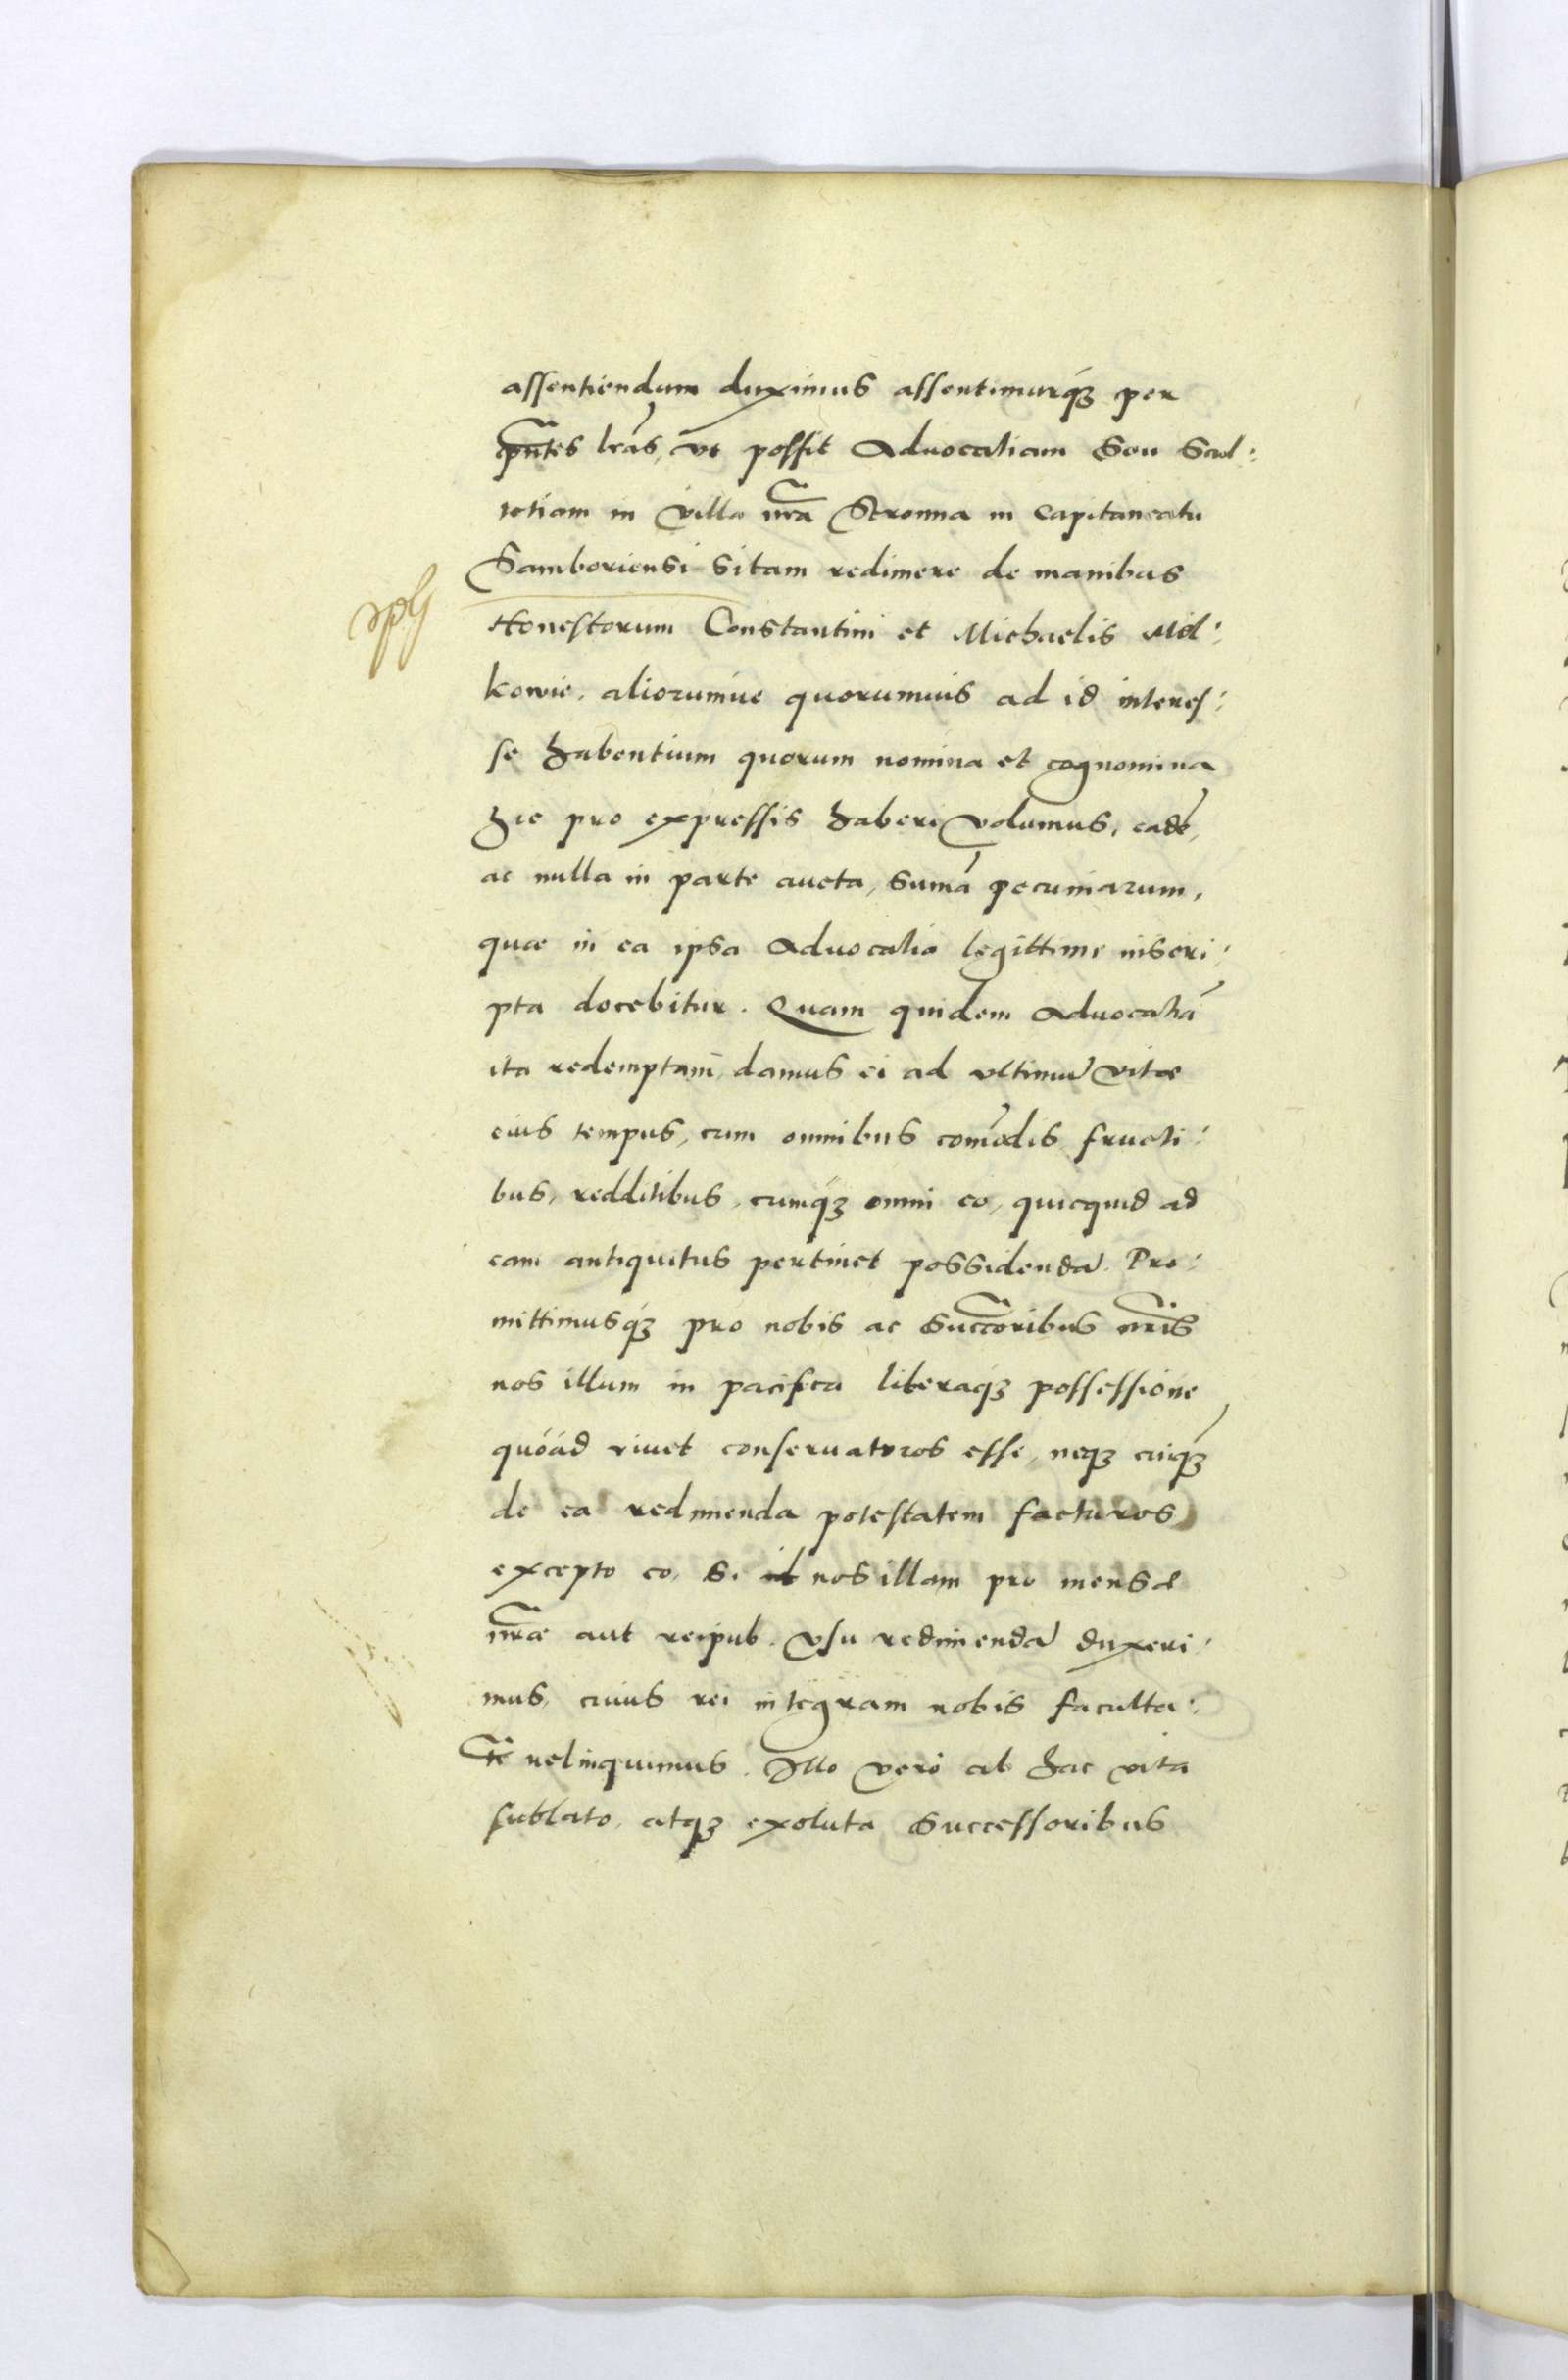 assentiendum duximus assentimurq́ꝫ per
pn̄tes lr̄as, vt possit Aduocatiam Seu Scul:
tetiam in villa nr̄a Stronna in Capitaneatu
Samboriensi sitam redimere de manibus
Honestorum Constantini et Michaelis Mil:
kowie. aliorumue quorumuis ad id interes:
se habentium quorum nomina et cognomina
hic pro expressis haberi volumus, eadē,
ac nulla in parte aucta, sumā pecuniarum,
quae in ea ipsa Aduocatia legittime inscri:
pta docebitur. Quam quidem Aduocatiā
ita redemptam, damus ei ad vltimū vitae
eius tempus, cum omnibus comōdis fructi:
bus, redditibus, cumq́ꝫ omni eo, quicquid ad
eam antiquitus pertinet possidendā. Pro:
mittimusq́ꝫ pro nobis ac Succ̄oribus nr̄is
nos illum in pacifica liberaqꝫ possessione
quoád viuet conseruaturos esse, neqꝫ cuiqꝫ̄
de ea redimenda potestatem facturos
excepto eo, si nos illam pro mensae
nr̄ae aut reipub. vsu redimendā duxeri:
mus, cuius rei integram nobis faculta:
tē relinquimus. Illo vero ab hac vita
sublato, atqꝫ exoluta Successoribus